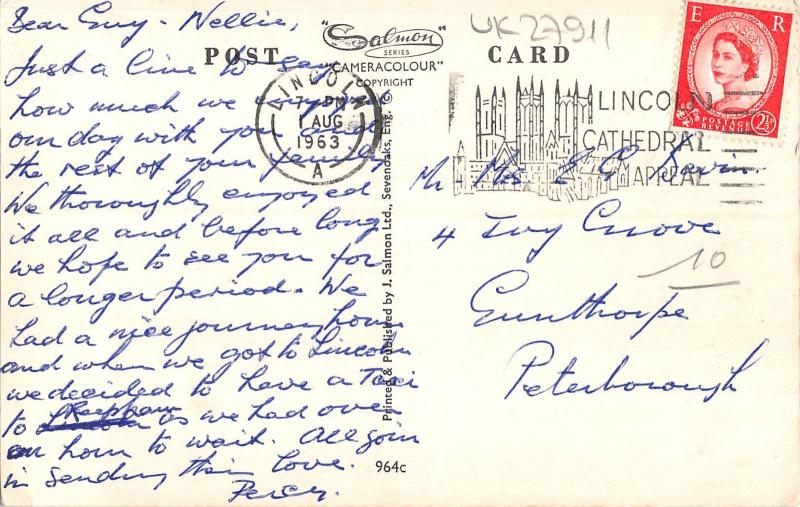 Dear Guy - Nellie,
Just a line to say
how much we enjoyed
our day with you and
the rest of your family
We thoroughly enjoyed
it all and before long
we hope to see you for
a longer period. We
had a nice journey home
and when we got to Lincoln
we decided to have a Taxi
to Reepham as we had over
an hour to wait. All join
in sending their love.
Percy.
POST CARD
"Salmon"
SERIES
"CAMERACOLOUR"
COPYRIGHT
UK27911
LINCOLN
7- PM
1 AUG
1963
A
LINCOLN
CATHEDRAL
APPEAL
E R
2½
POSTAGE
REVENUE
Mr Mrs
4 Ivy Grove
Gunthorpe
Peterborough
10
Printed & Published by J. Salmon Ltd., Sevenoaks, Eng. ©
964c